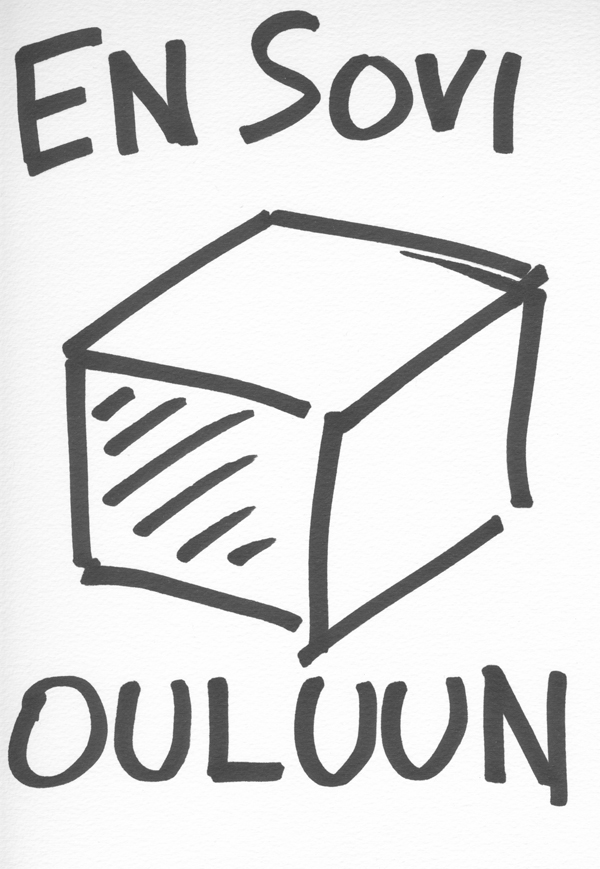 EN SOVI
OULUUN